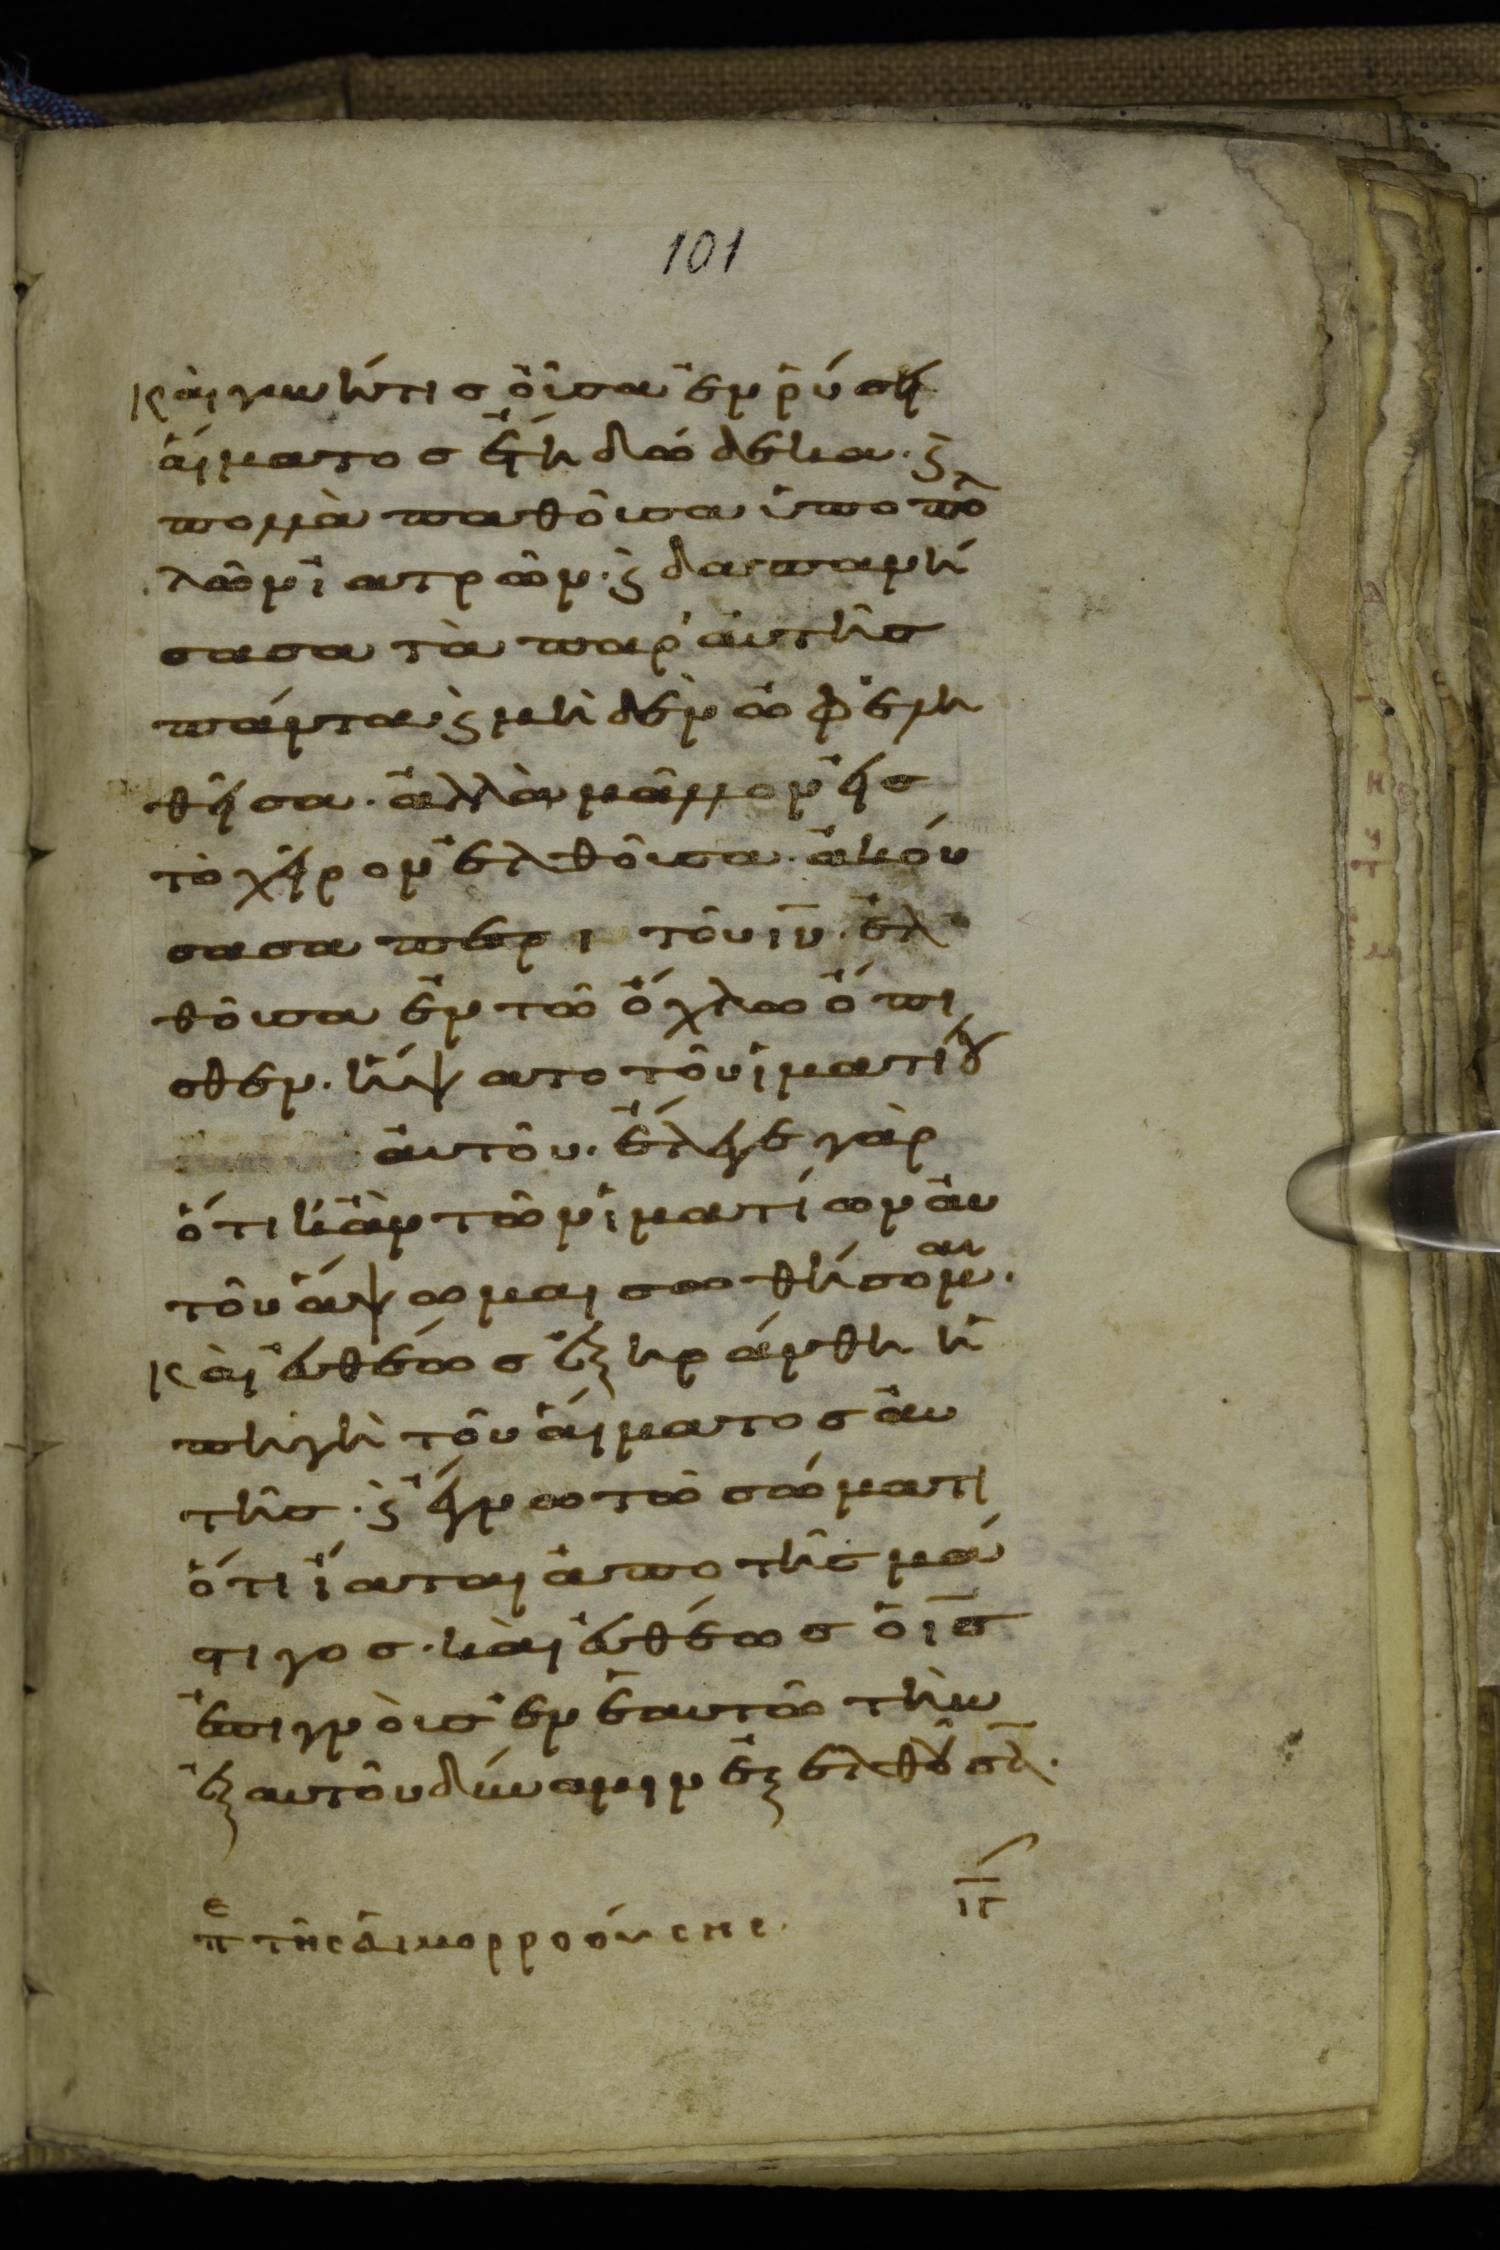 101
καὶ γυνή τις οὖσα ἐν ῥύσει
αἵματος ἔτη δώδεκα· ϗ
πολλὰ παθοῦσα ὑπο πολ
λῶν ἰατρῶν· ϗ δαπανή
σασα τὰ παρ' αὐτῆς
πάντα· ϗ μὴ δὲν ὠφελη
θεῖσα· ἀλλὰ μᾶλλον εἰς
τὸ χεῖρον ἐλθοῦσα· ἀκού
σασα περι τοῦ ιῡ· ἐλ
θοῦσα ἐν τῶ ὄχλω ὄπι
σθεν· ἥψατο τοῦ ἱματίου
αὐτοῦ· ἔλεγε γὰρ
ὅτι κἂν τῶν ἱματίων αὐ
τοῦ ἅψωμαι σωθήσομαι·
καὶ εὐθέως ἐξηράνθη ἡ
πηγὴ τοῦ αἵματος αὐ
τῆς· ϗ ἔγνω τῶ σώματι
ὅτι ἴαται ἀπο τῆς μά
στιγος· καὶ εὐθέως ὁ ις̄
ἐπιγνοὺς ἐν ἑαυτῶ τὴν
ἐξ αυτοῦ δύναμιν ἐξελθοῦσαν·
ιγ̄
πε τῆς αἱμορροούσης·